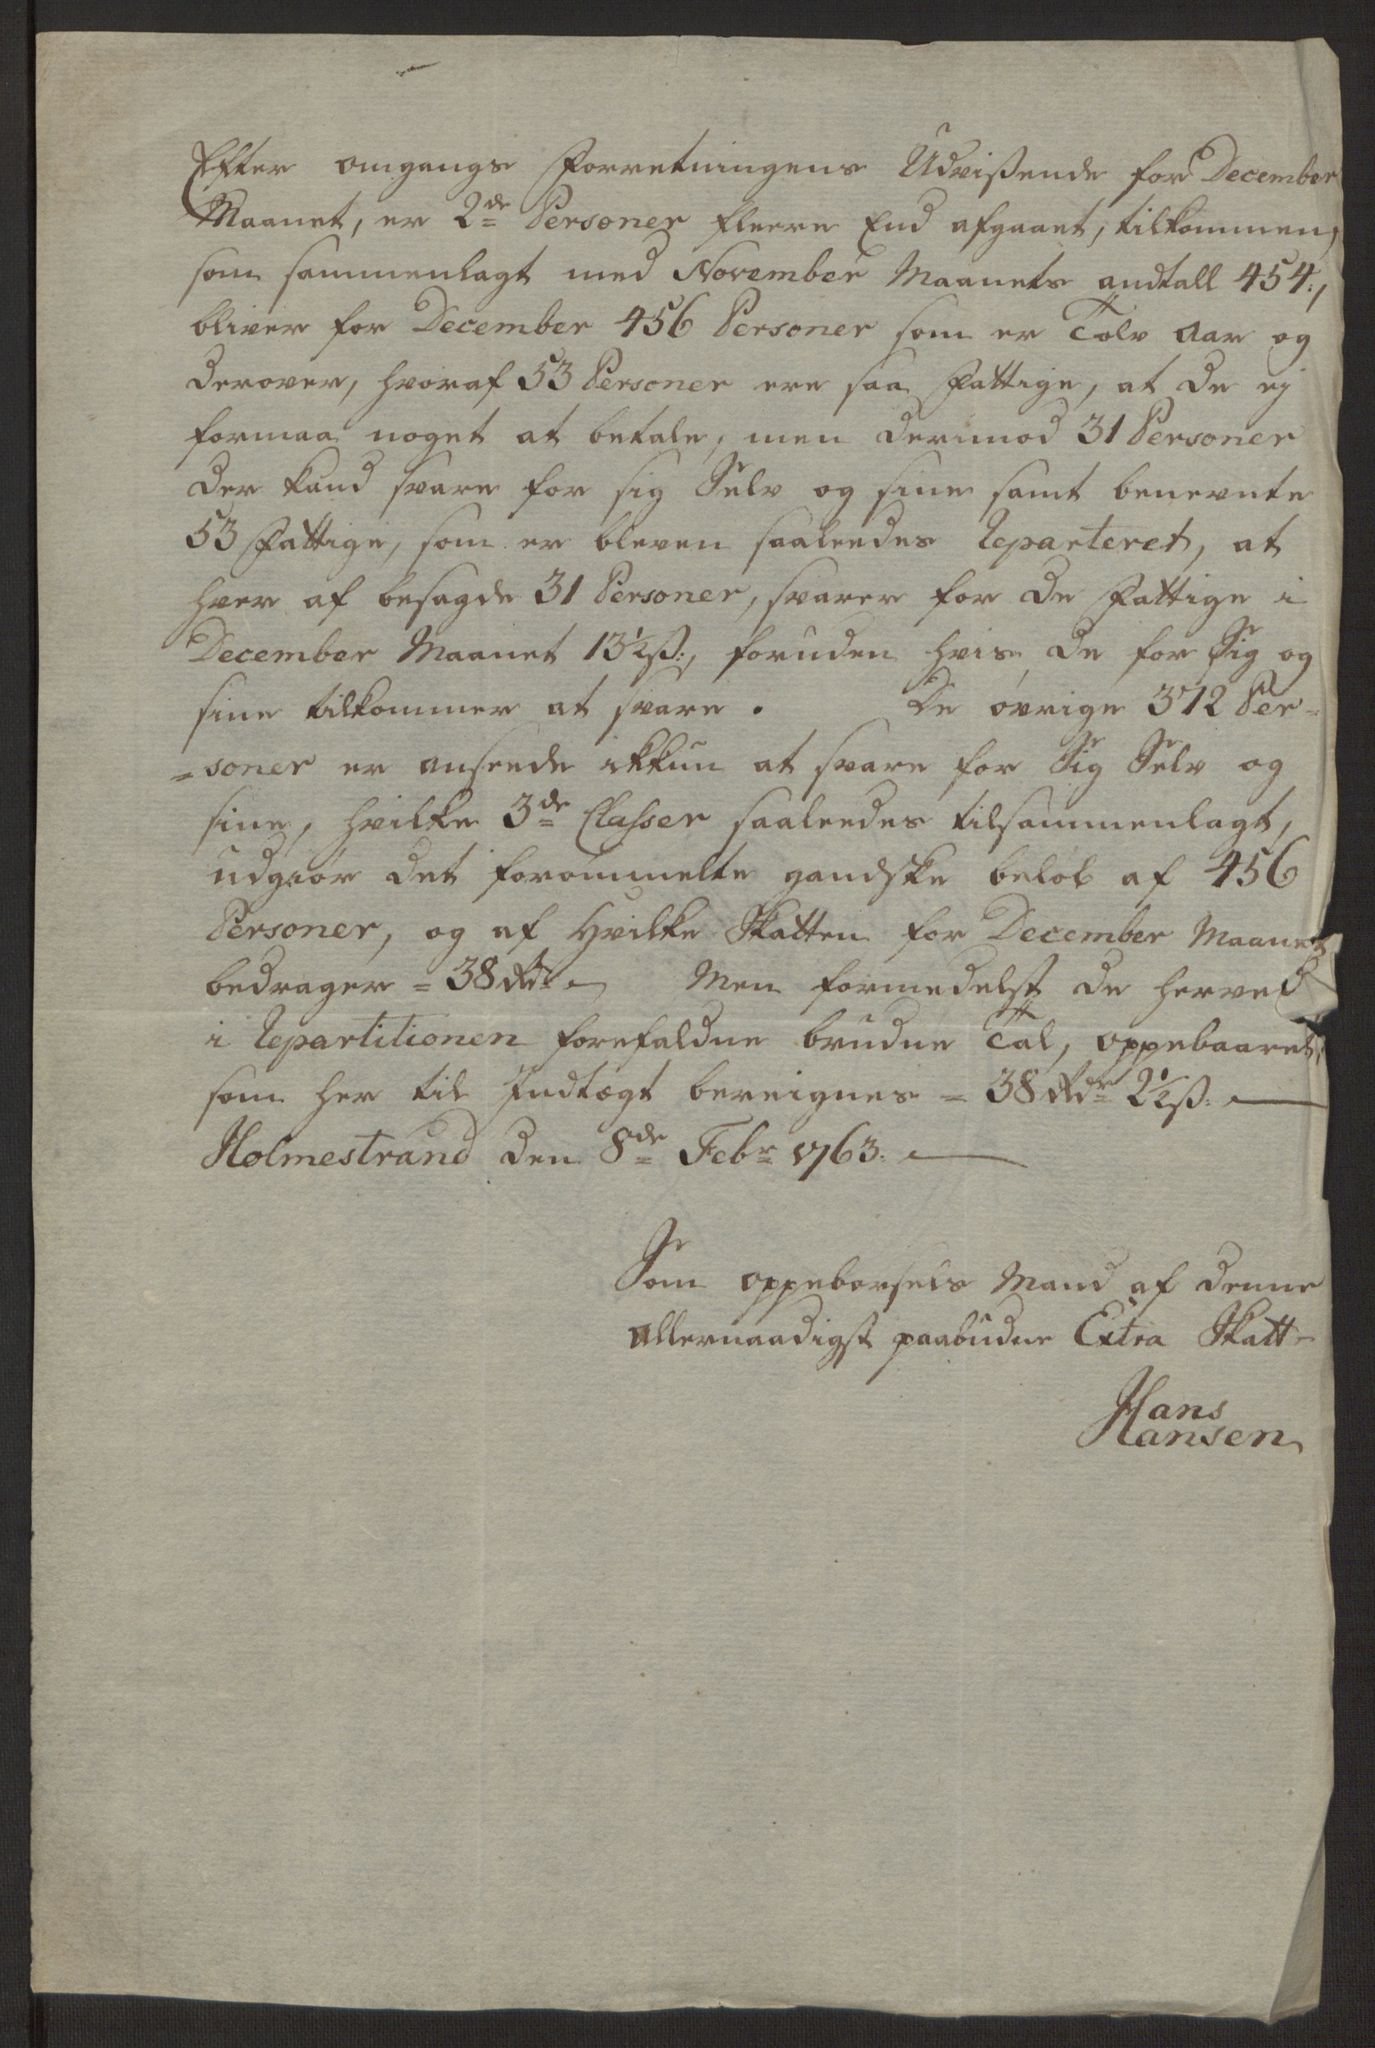 Efter omgangs Forretningens Udvißende for December
Maanet, er 2de Personer fleere End afgaaet, tilkommen,
som sammenlagt med November Maanets andtall 454.,
bliver for December 456 Personer som er Tolv Aar og
derover, hvoraf 53 Personer ere saa Fattige, at de ej
formaa noget at betale, men derimod 31 Personer
der kand svare for sig Selv og sine samt benevnte
53 Fattige, som er bleven saaleedes Reparteret, at
hver af besagde 31 Personer, svarer for de Fattige i
December Maanet 13½ß:, foruden hvis de for Sig og
sine tilkommer at svare. De øvrige 372 Per=
=soner er ansende ikkun at svare for Sig Selv og
sine, hvilke 3de Classer saaleedes tilsammenlagt,
udgiør det forommelte gandske beløb af 456
Personer, og af Hvilke Skatten for December Maanet
bedrager = 38 Rdr Men formedelst de herved
i Repartitionen forefaldne brudne Tal, oppebaaret,
som her til Indtægt bereignes = 38 Rdr 2½ß.
Holmestrand den 8de Febr 1763.
Som oppebørsels Mand af denne
allernaadigst paabudne Extra Skatt
Hans
Hansen